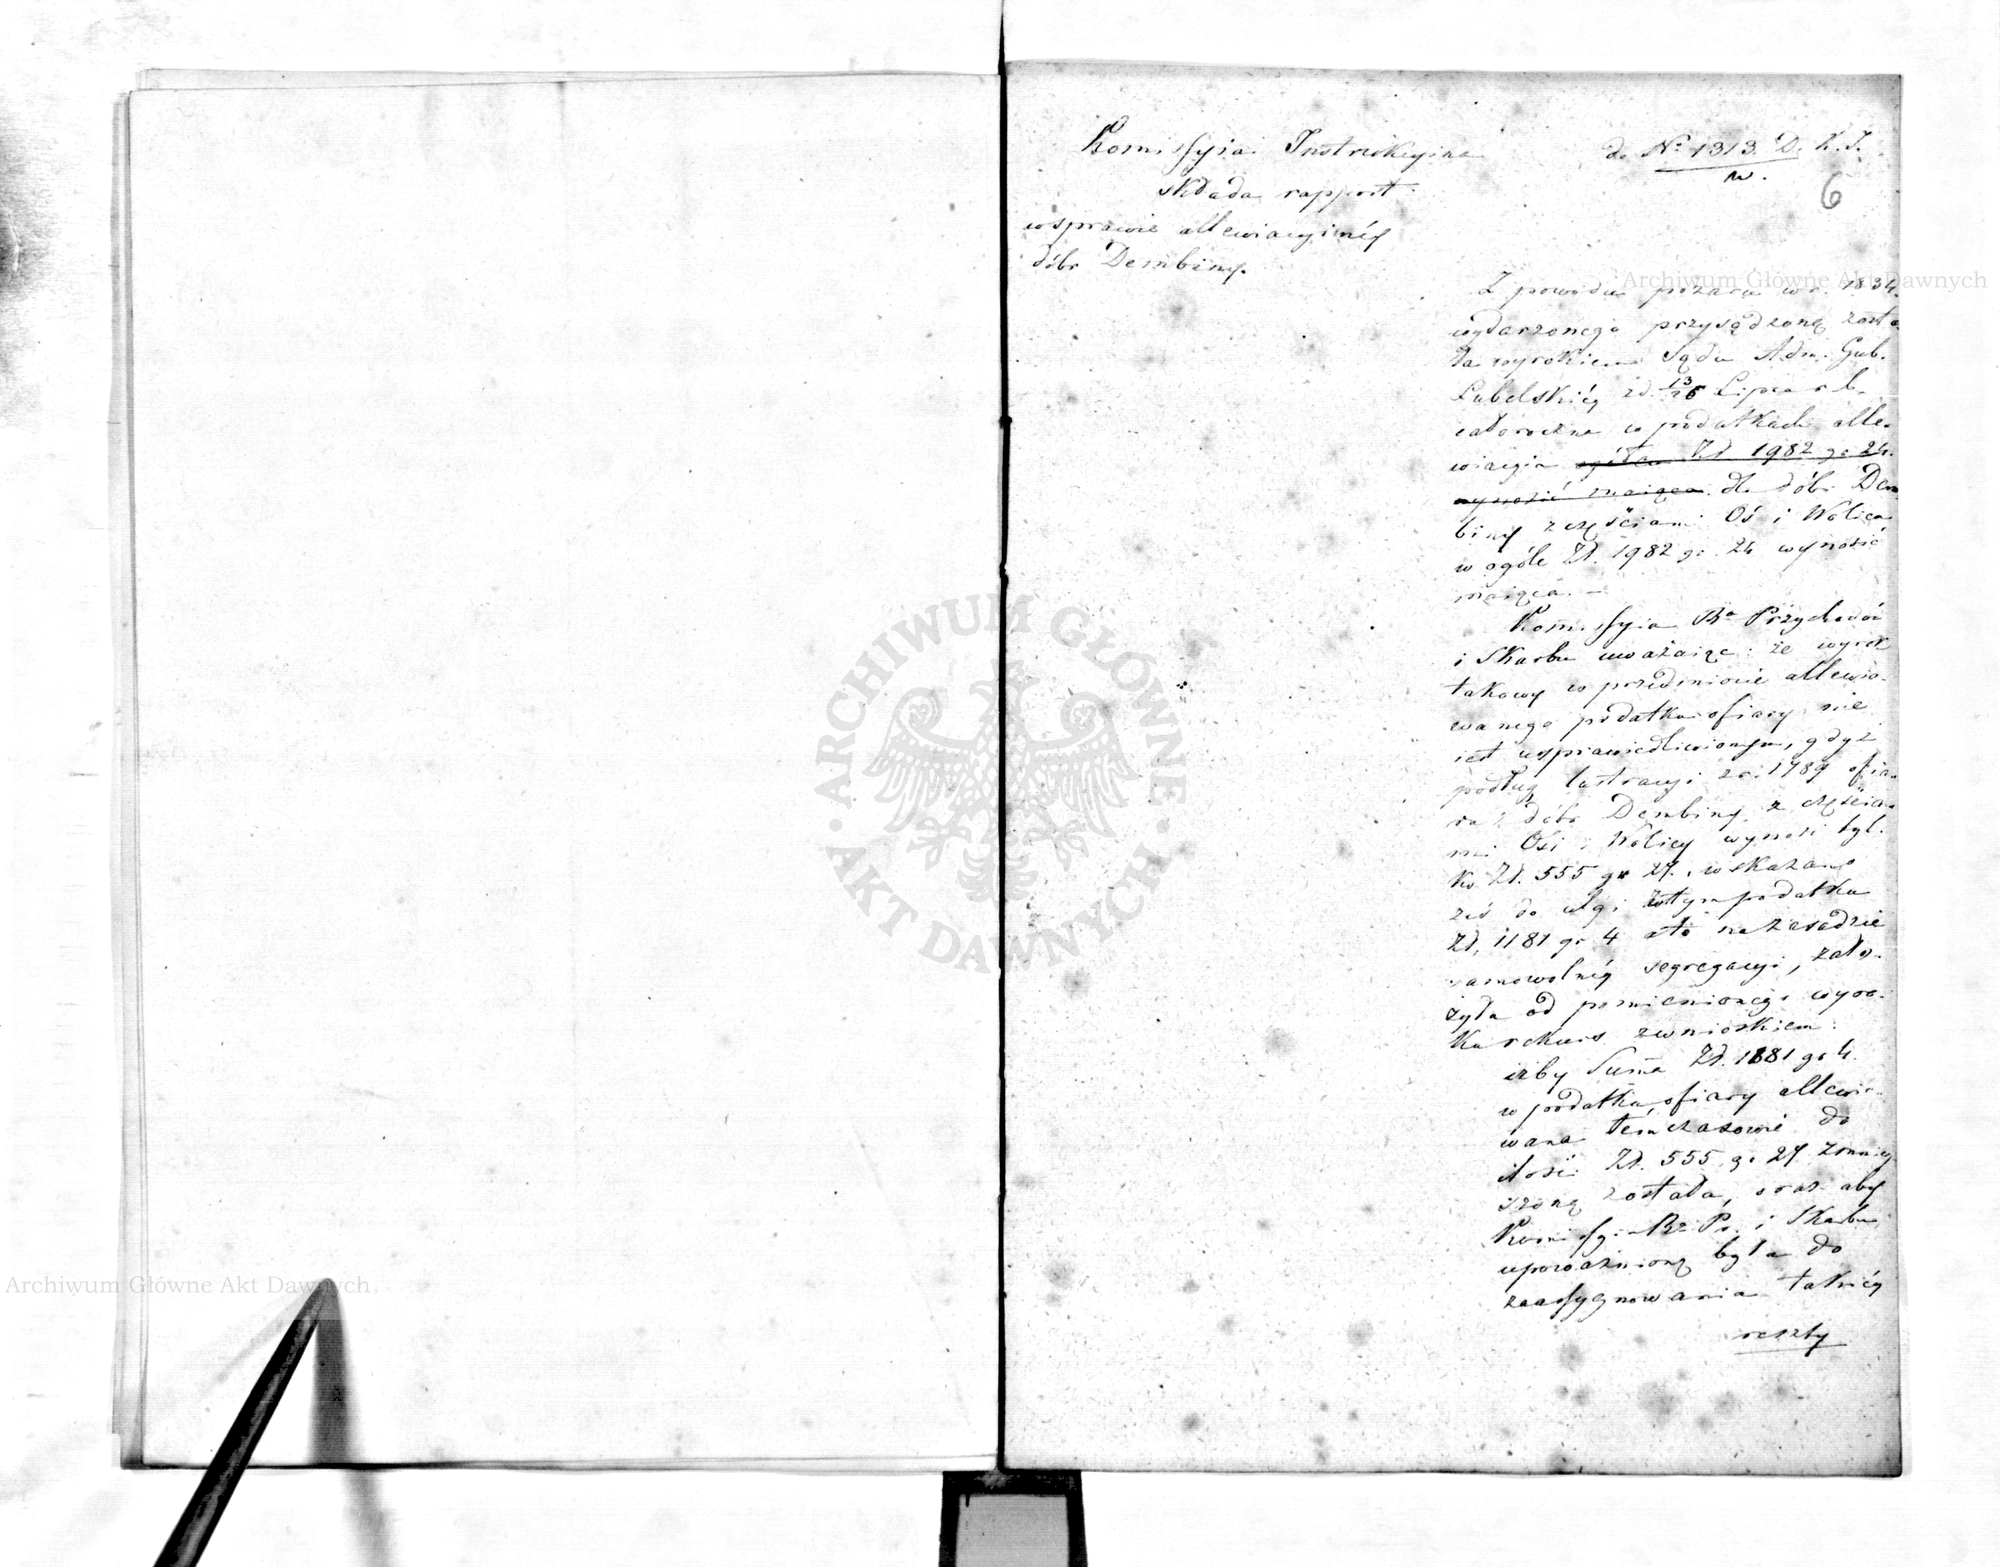 Komissyia Instrukcyina
składa rapport
w sprawie allewiacyinéy
dóbr Dembiny.
do Nº 1313. D. K. I.
w.
6
Z powodu pożaru w r. 1834.
wydarzonego przysądzoną zosta
ła wyrokiem Sądu Adm. Gub.
Lubelskiéy z d. 13/ Lipca r. b.
całoroczna w podatkach alle-
wiacyia ogółem Zł. 1982 gr. 24.
wynosić maiąca dla dóbr Dem
biny z częściami Oś i Wolica
w ogóle Zł. 1982 gr. 24 wynosić
maiąca. —
Komissyia Rª Przychodów
i Skarbu uważaiąc: że wyrok
takowy w przedmiocie allewio-
wanego podatku ofiary nie
iest usprawiedliwionym, gdyż
podług lustracyi z r. 1789 ofia-
ra z dóbr Dembiny z częścia-
mi Osi i Wolicy wynosi tyl-
ko Zł. 555 gr 27., wskazano
zaś do ulgi w tym podatku
Zł. 1181 gr 4 a to na zasadzie
samowolnéy segregacyi, zało-
żyła od pomienionego wyro-
ku rekurs z wnioskiem:
iżby Summa Zł. 1181 gr 4.
w podatku ofiary allewio-
wana temczasowie do
ilości Zł. 555 gr 27 zmniey
szoną została, oraz aby
Komissyia Rz. Pr. i Skarbu
upoważnioną była do
zaassygnowania takiéy
reszty
Archiwum Główne Akt Dawnych
Archiwum Główne Akt Dawnych
ARCHIWUM GŁÓWNE · AKT DAWNYCH ·